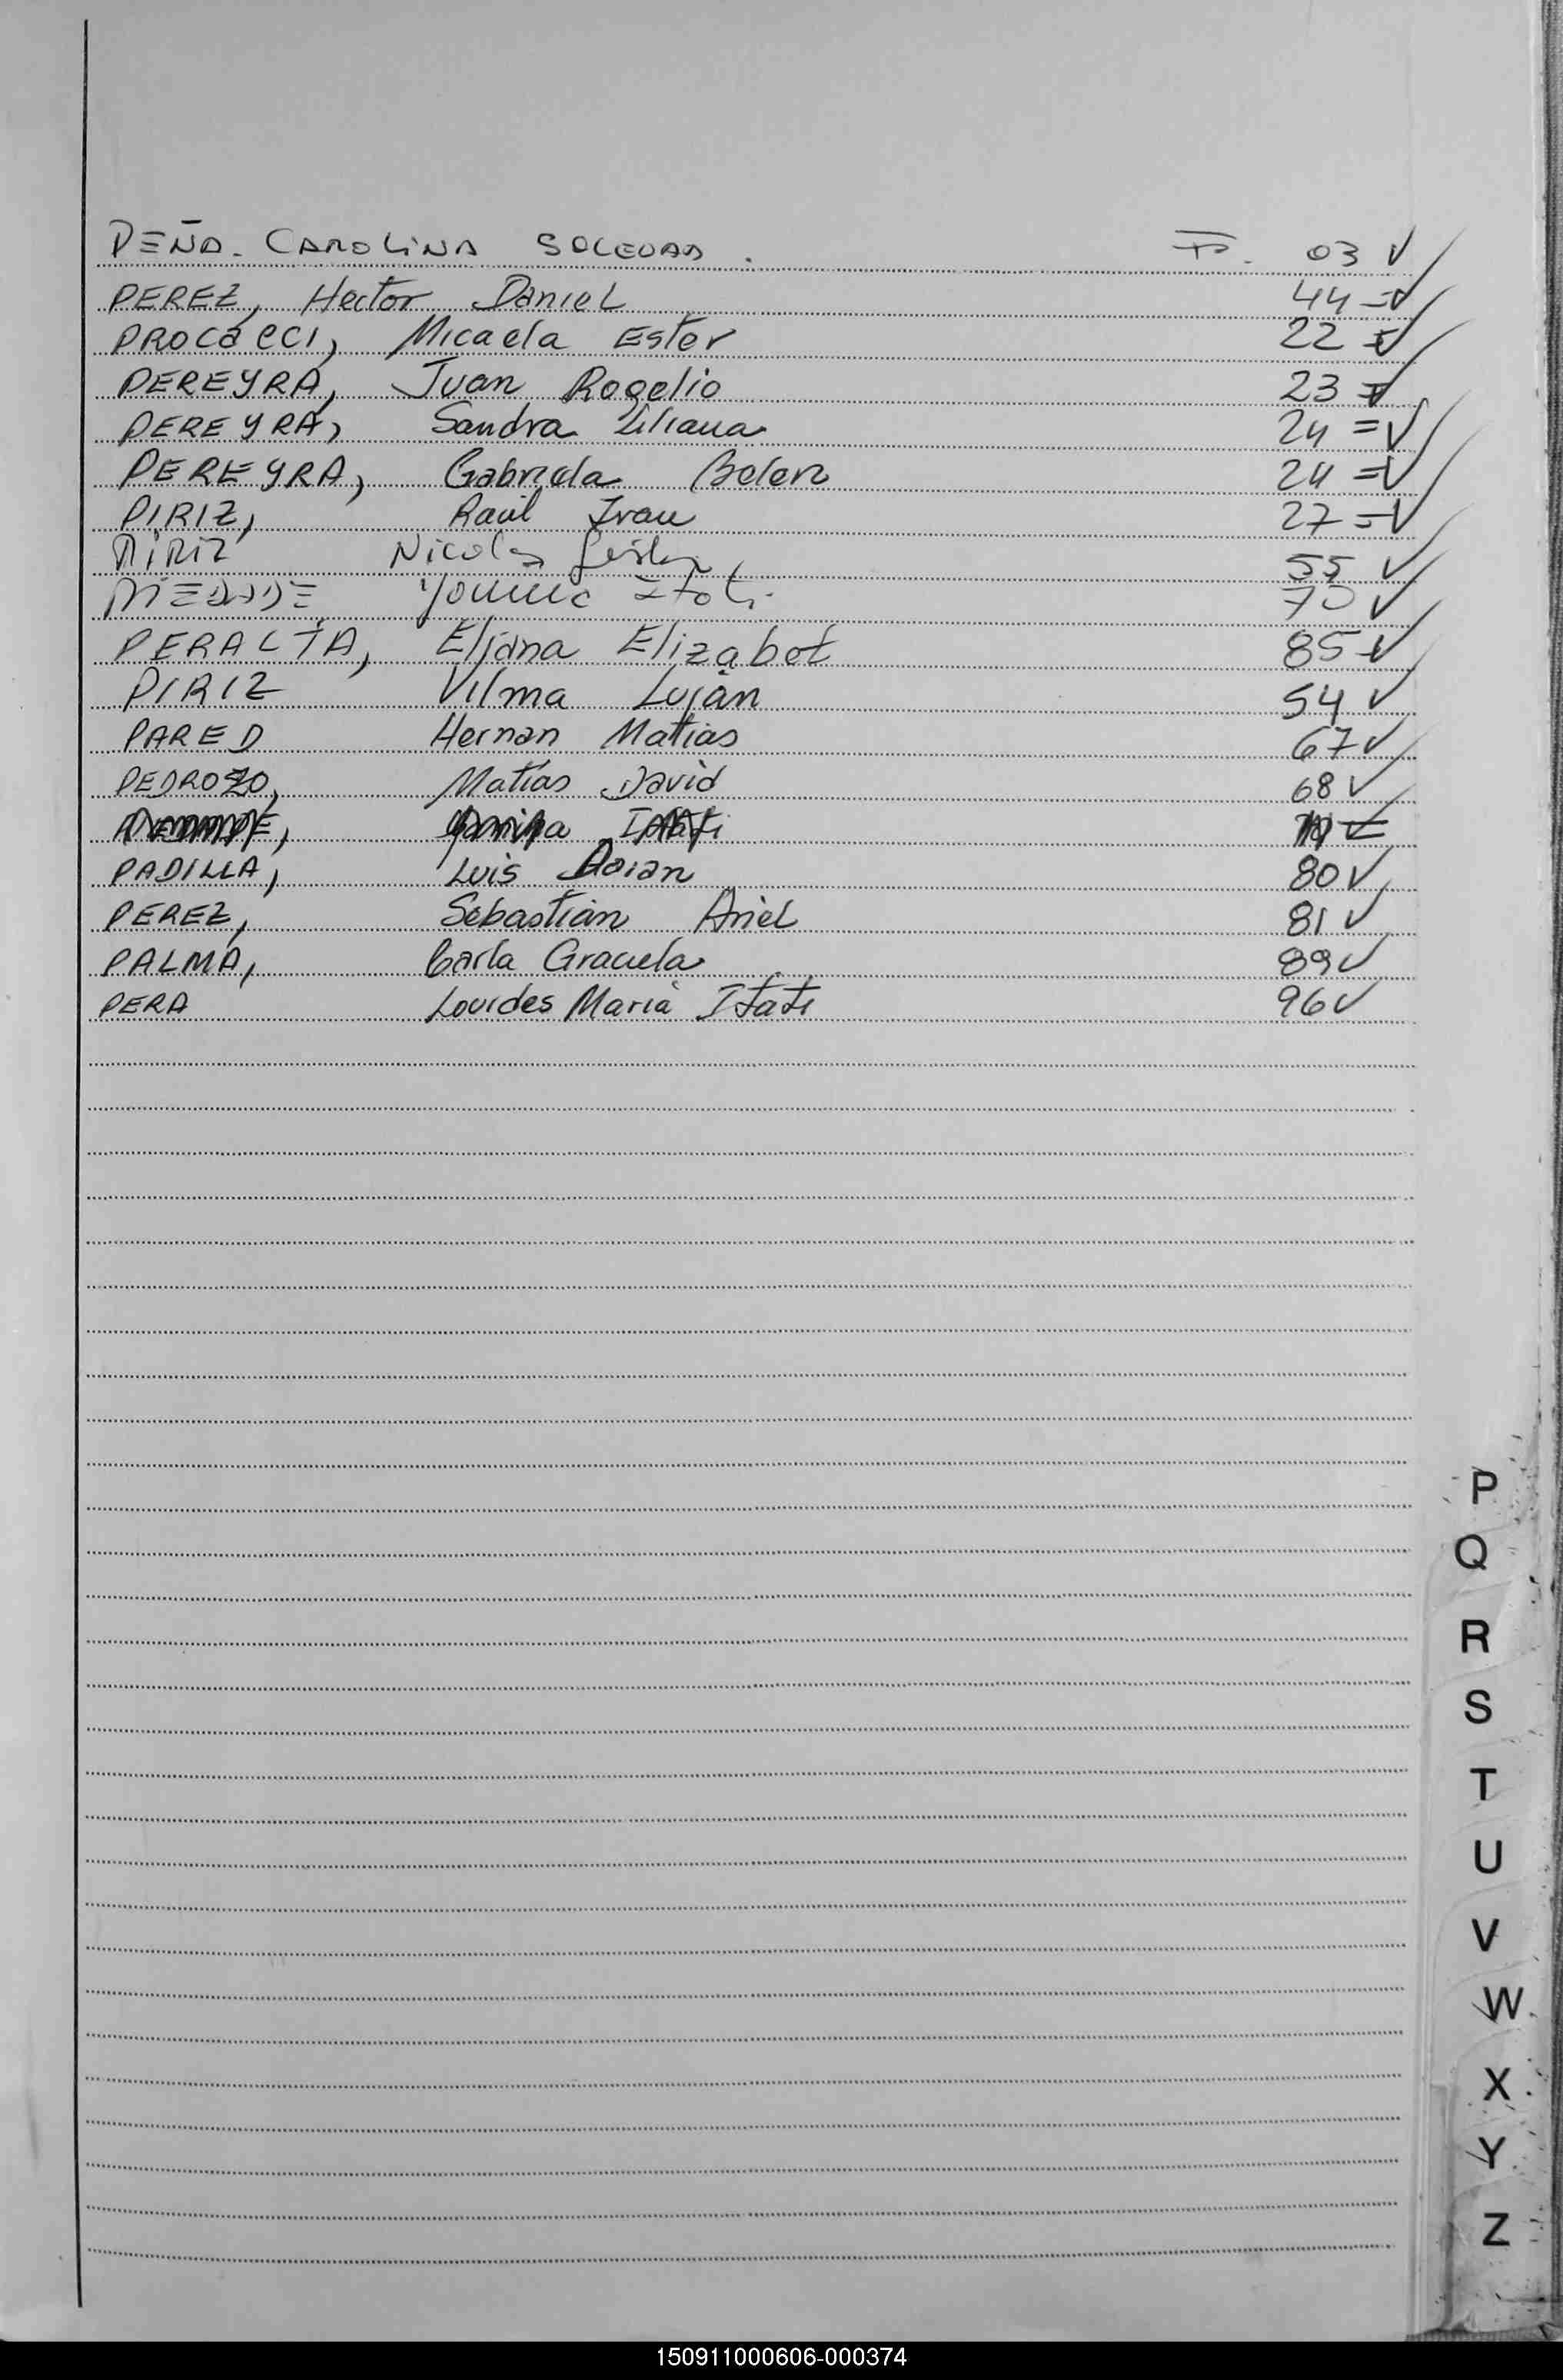 PEÑA. CAROLINA SOLEDAD. F. 03 ✓
PEREZ, Hector Daniel 44 = ✓
PROCACCI, Micaela Ester 22 = ✓
PEREYRA, Juan Rogelio 23 = ✓
PEREYRA, Sandra Liliana 24 = ✓
PEREYRA, Gabriela Belen 24 = ✓
PIRIZ, Raúl Ivan 27 = ✓
PIRIZ Nicolas 55 ✓
PIEDADE Yanina Itati 70 ✓
PERALTA, Eliana Elizabet 85 ✓
PIRIZ Vilma Luján 54 ✓
PARED Hernán Matias 67 ✓
PEDROZO, Matías David 68 ✓
PADILLA, Luis Adrian 80 ✓
PEREZ, Sebastián Ariel 81 ✓
PALMA, Carla Graciela 89 ✓
PERA Lourdes Maria Itati 96 ✓
P
Q
R
S
T
U
V
W
X
Y
Z
150911000606-000374